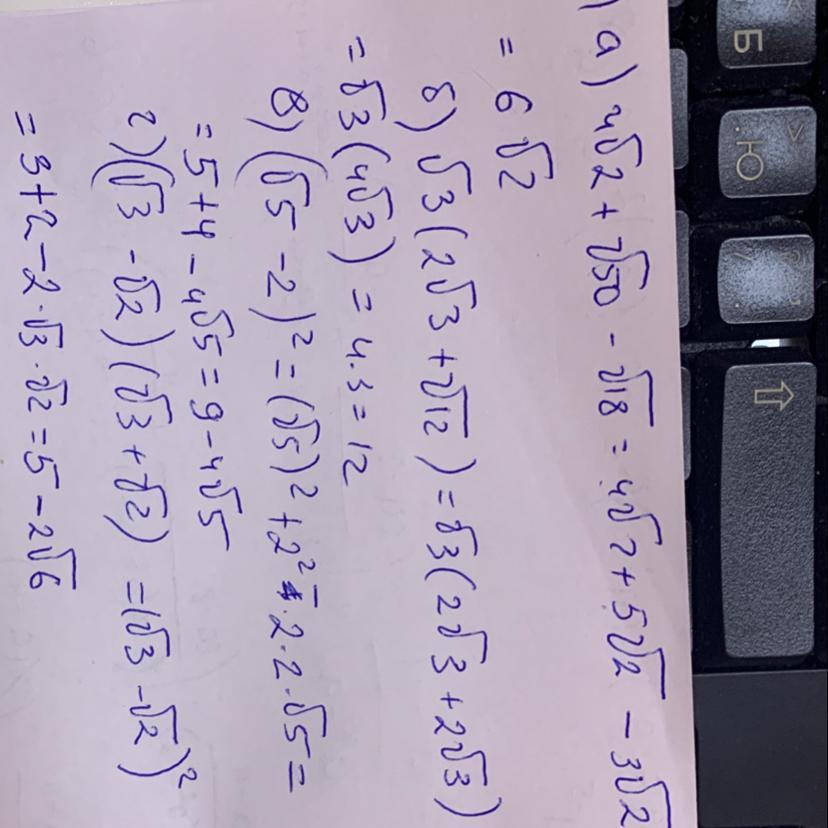 а) 4√2 + √50 - √18 = 4√2 + 5√2 - 3√2
= 6√2
б) √3(2√3 + √12) = √3(2√3 + 2√3)
= √3(4√3) = 4·3 = 12
в) (√5 - 2)² = (√5)² + 2² - 2·2·√5 =
= 5 + 4 - 4√5 = 9 - 4√5
г) (√3 - √2)(√3 + √2) = (√3 - √2)²
= 3 + 2 - 2·√3·√2 = 5 - 2√6
Б
Ю